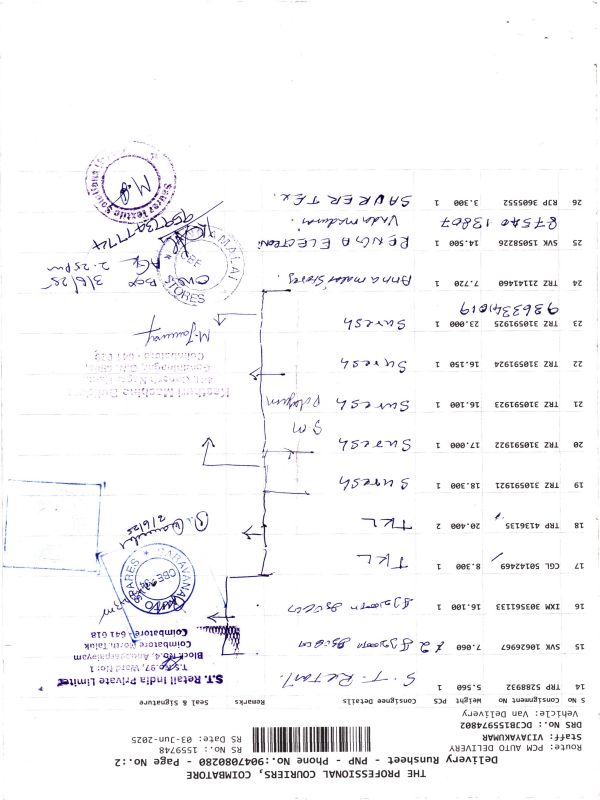 THE PROFESSIONAL COURIERS, COIMBATORE
Delivery Runsheet - PNP - Phone No:9047080280 - Page No.:2
Route: PCM AUTO DELIVERY
Staff: VIJAYAKUMAR
DRS No.: DC3B155974802
Vehicle: Van Delivery
RS No.: 1559748
RS Date: 03-Jun-2025
S No Consignment No Weight PCS Consignee Details Remarks Seal & Signature
14 TRP 5288932 5.560 1 S.T. Retail.
S.T. Retail India Private Limited
T.S.No.97, Ward No: 1
Block No.4, Anupparpalayam
Coimbatore North, Taluk
Coimbatore - 641 018
15 SVK 10626967 7.060 1
16 IXM 303561333 16.100 1
SARAVANA AUTO SPARES
CBE
17 CGL 50142469 8.300 1 TKL
18 TRP 4136135 20.400 2 TKL
19 TRZ 310591921 18.300 1 Suresh
20 TRZ 310591922 17.000 1 Suresh
S.M
21 TRZ 310591923 16.100 1 Suresh
22 TRZ 310591924 16.150 1 Suresh
Coimbatore - 641 029
23 TRZ 310591925 23.000 1 Suresh
9363341019
24 TRZ 21141460 7.720 1 Annamalai Stores.
ANNAMALAI STORES
one Box
3/6/25
2.25pm
25 SVK 15058226 14.500 1 RENGA ELECTRON
87540 13807
26 RJP 3605552 3.300 1 SAURER TEX.
Saurer Textile Solutions